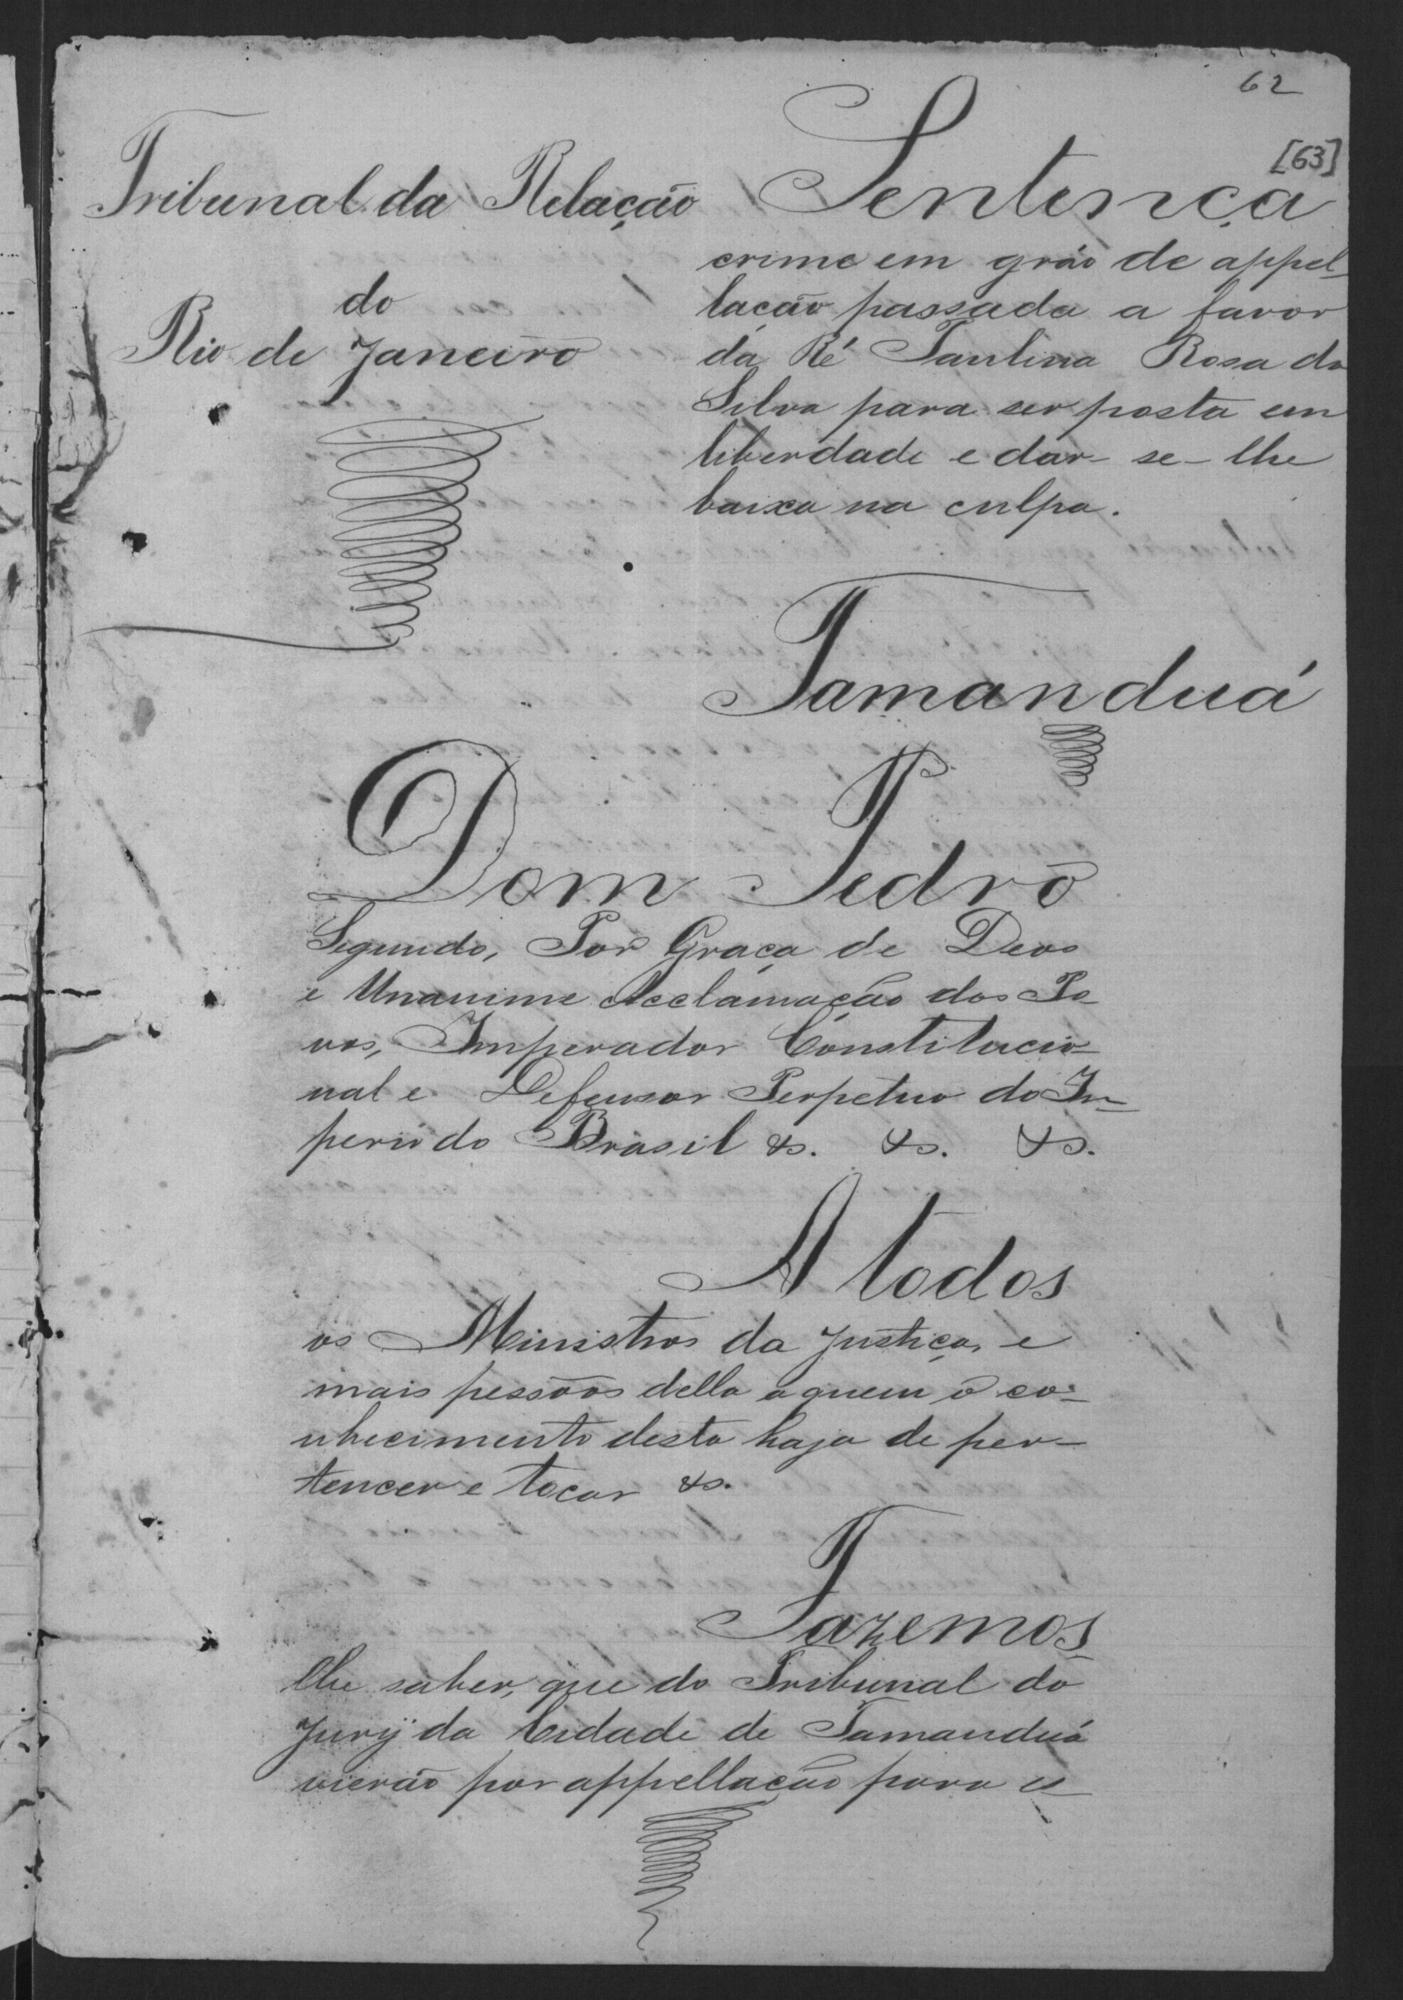 62
[63]
Tribunal da Relação
do
Rio de Janeiro
Sentença
crime em gráo de appel-
lação passada a favor
da Ré Paulina Rosa da
Silva para ser posta em
liberdade e dar-se-lhe
baixa na culpa.
Tamanduá
Dom Pedro
Segundo, Por Graça de Deos
e Unanime Acclamação dos Po-
vos, Imperador Constitucio-
nal e Defensor Perpetuo do Im-
perio do Brasil &. &. &.
A todos
os Ministros da Justiça, e
mais pessôas della a quem o co-
nhecimento desta haja de per-
tencer e tocar &.
Fazemos-
lhe saber, que do Tribunal do
Jury da Cidade de Tamanduá
vierão por appellação para es-